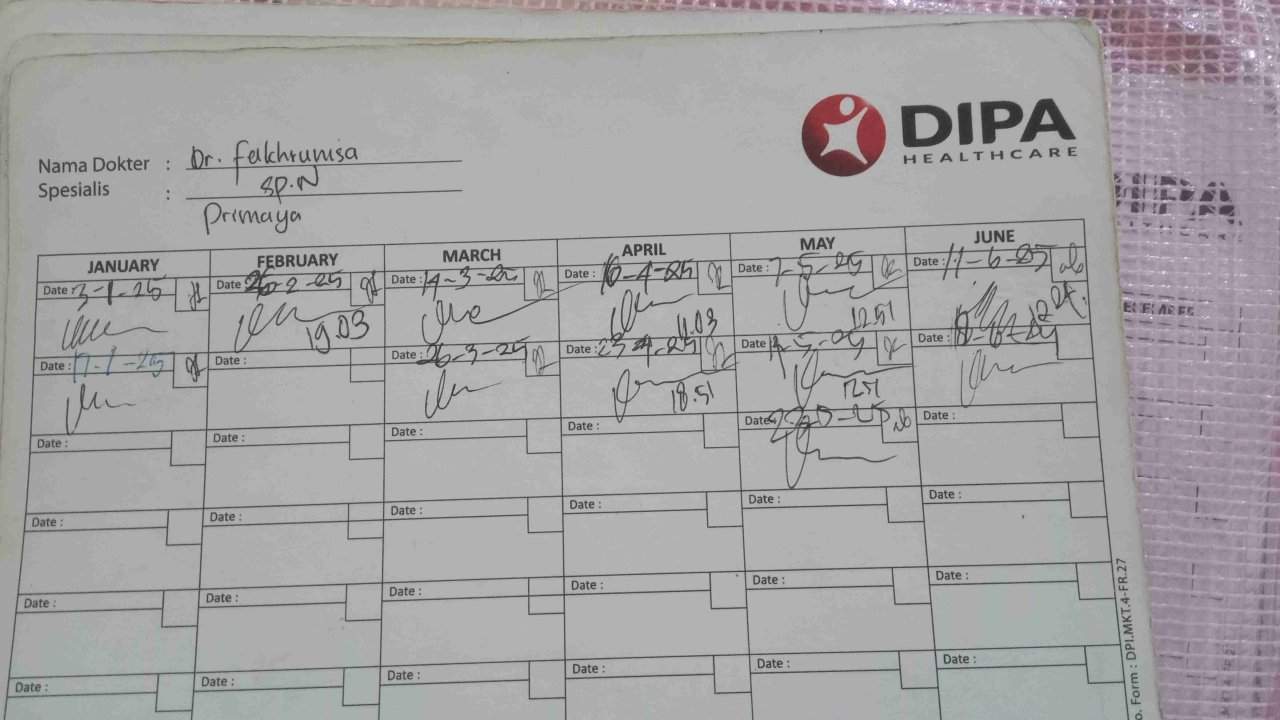 DIPA
HEALTHCARE
Nama Dokter : Dr. Fakhrunisa
Spesialis : SP.N
Primaya
JANUARY FEBRUARY MARCH APRIL MAY JUNE
Date : 3-1-25 Date : 26-2-25 Date : 14-3-25 Date : 10-4-25 Date : 7-5-25 Date : 11-6-25
19.03 11.03 12.51
Date : 17-1-25 Date : Date : 26-3-25 Date : 23-4-25 Date : Date :
18.51 12.51
Date : Date : Date : Date : Date : Date :
Date : Date : Date : Date : Date : Date :
Date : Date : Date : Date : Date : Date :
Date : Date : Date : Date : Date : Date :
o. Form : DPI.MKT.4-FR.27